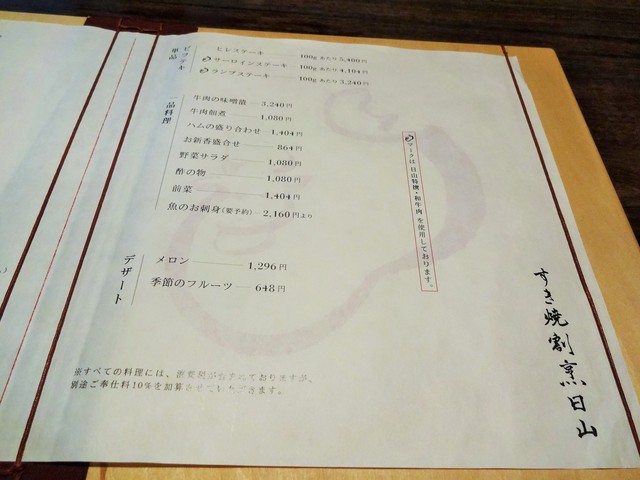 ビフテキ
単品
ヒレステーキ 100g あたり 5,400円
サーロインステーキ 100g あたり 4,104円
ランプステーキ 100g あたり 3,240円
一品料理
牛肉の味噌漬 3,240円
牛肉佃煮 1,080円
ハムの盛り合わせ 1,404円
お新香盛合せ 864円
野菜サラダ 1,080円
酢の物 1,080円
前菜 1,404円
魚のお刺身(要予約) 2,160円より
デザート
メロン 1,296円
季節のフルーツ 648円
マークは日山特撰・和牛肉を使用しております。
すき焼割烹日山
※すべての料理には、消費税が含まれておりますが、
別途ご奉仕料10%を加算させていただきます。